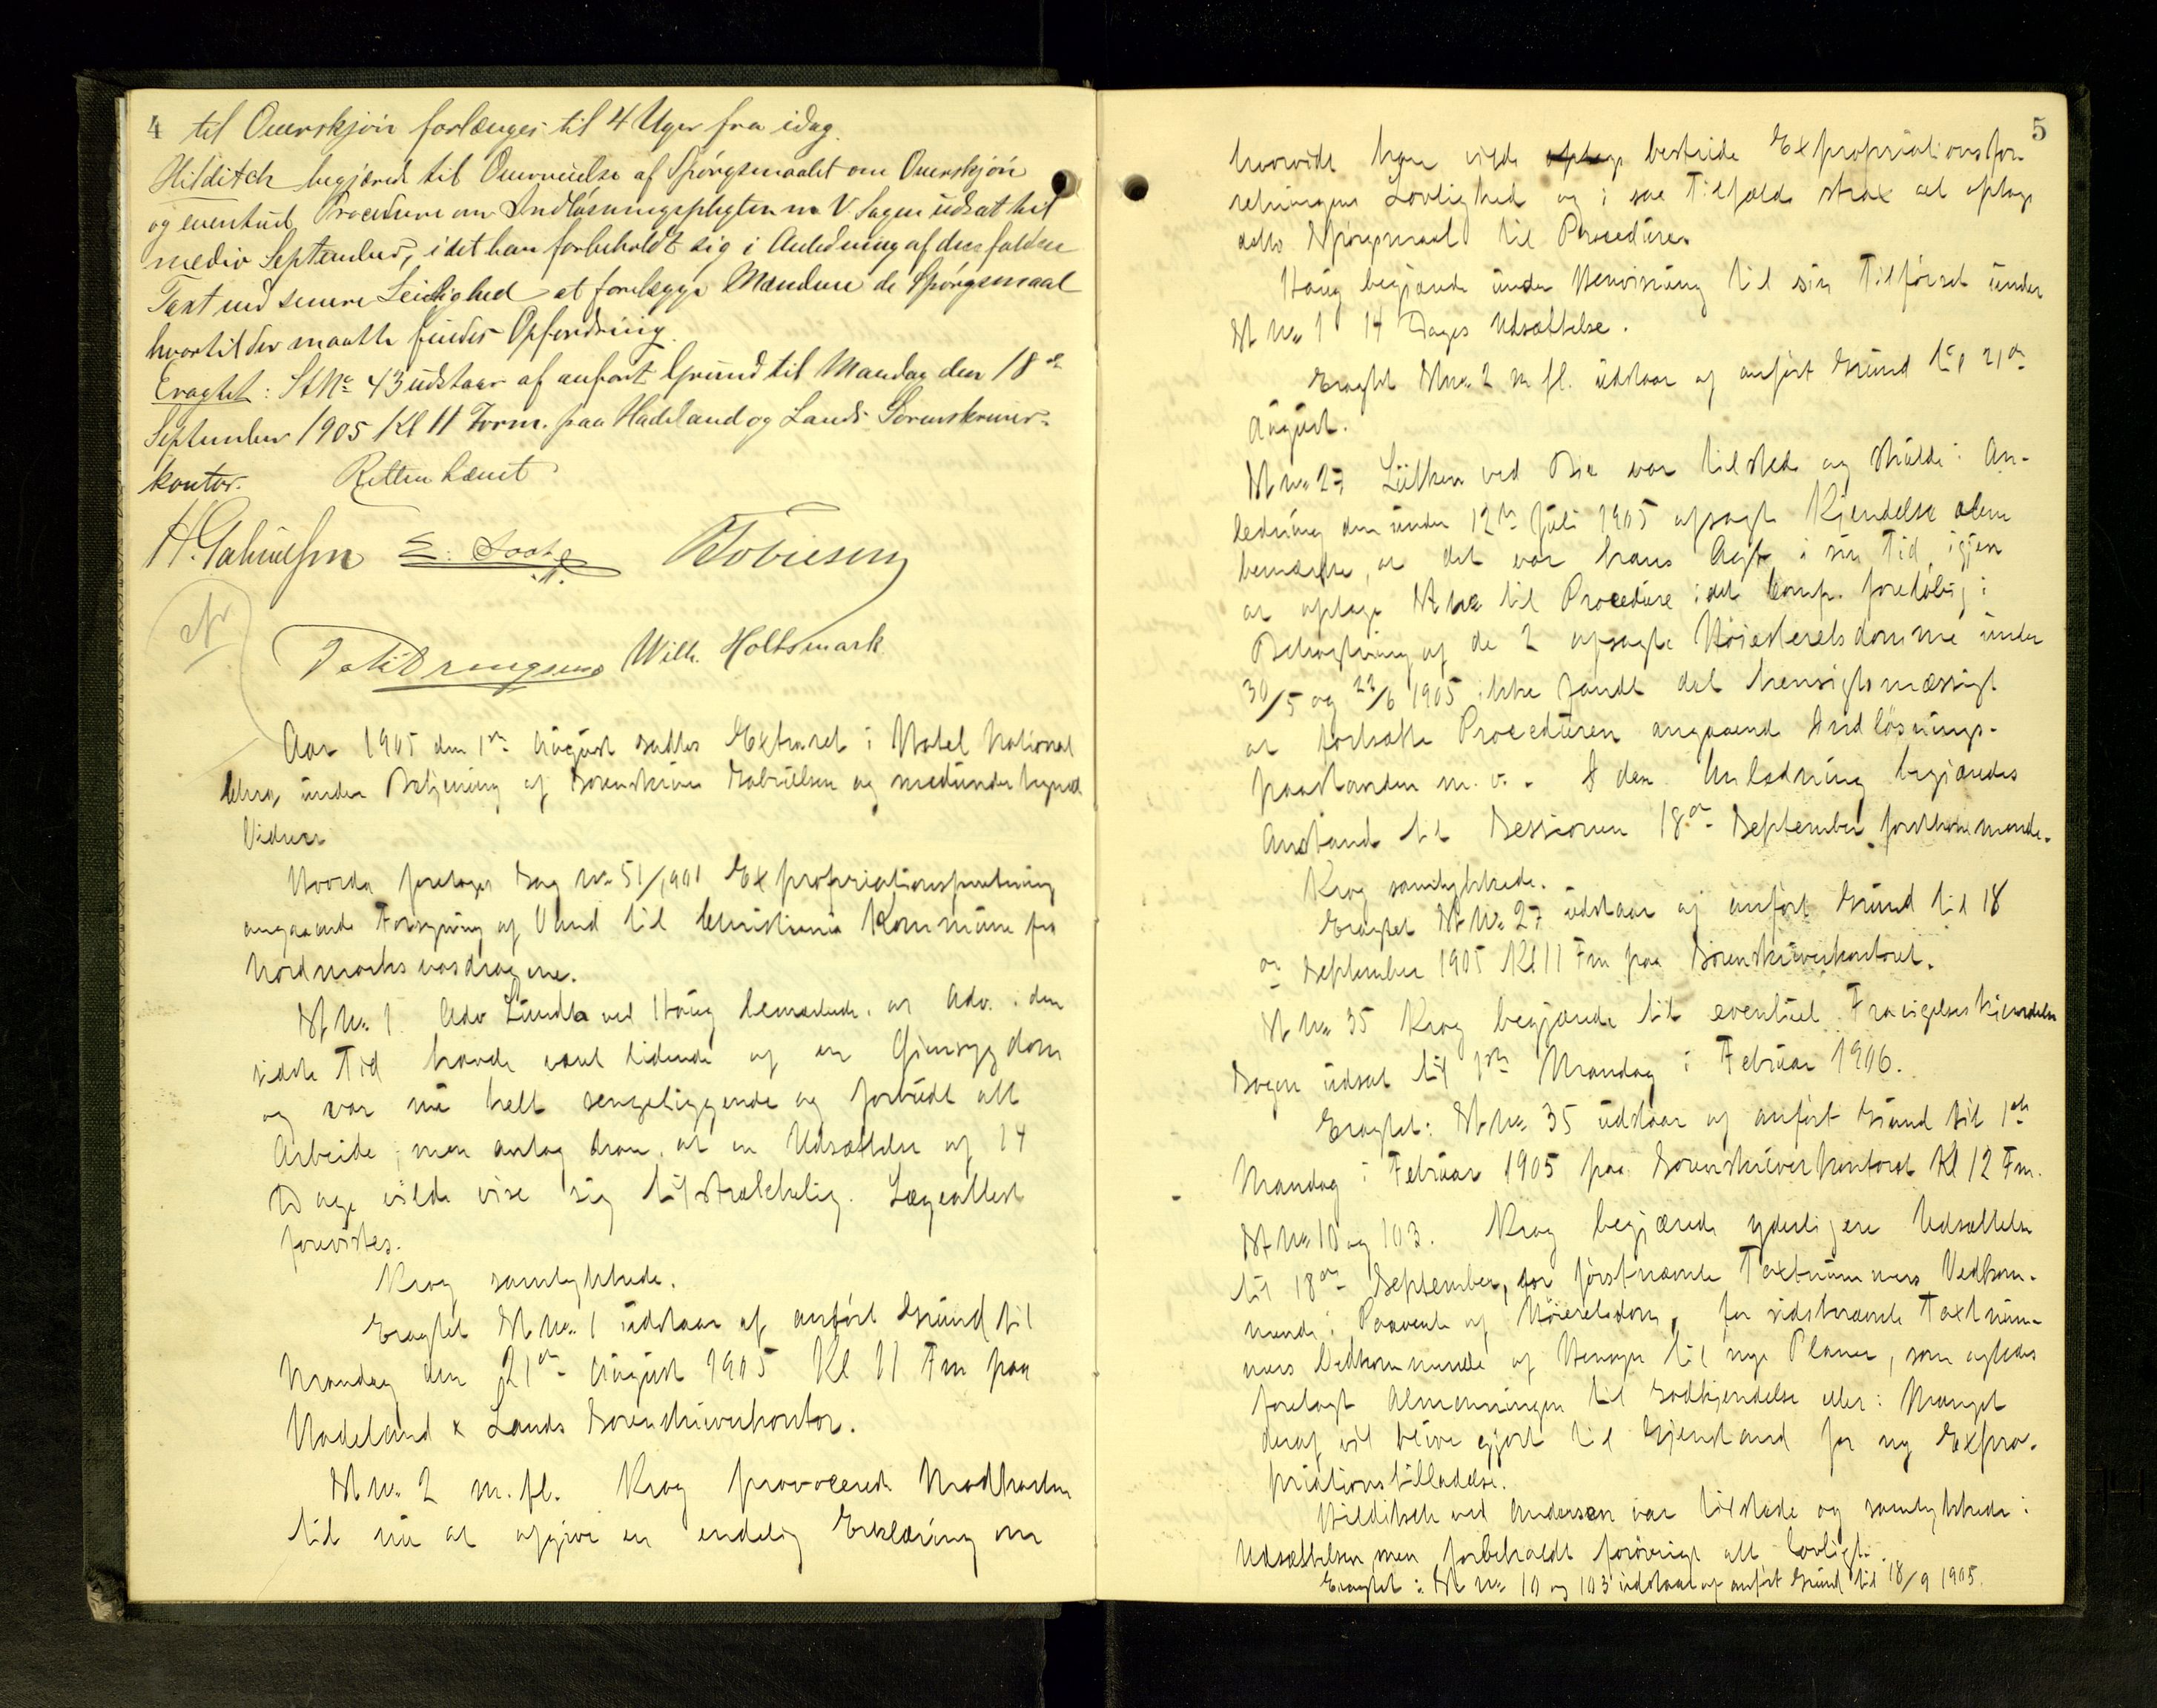 4 til Overskjøn forlænges til 4 Uger fra idag.
Hilditch begjæred til Overveielse af Spørgsmaalet om Overskjøn
og eventuel Procedure om Indløsningspligten m. V. Sagen udsat til
medio September, idet han forbeholdt sig i Anledning af den faldne
Taxt ved senere Leilighed at forelægge Mændene de Spørgsmaal
hvortil der maatte findes Opfordring.
Eragtet: St No 43 udstaar af anført Grund til Mandag den 18de
September 1905 Kl 11 Form. paa Hadeland og Lands Sorenskriver-
kontor. Retten hævet
H. Gabrielsen
Tobiesen
Wilh. Holtsmark
Aar 1905 den 1ste August sattes Extraret i Hotel National
Chra under Betjening af Sorenskriver Gabrielsen og medundertegned
Vidner
Hvorda foretoges Sag No 51/1901 Expropriationsforretning
angaaende Forsyning af Vand til Christiania Kommune fra
Nordmarksvasdragene.
St No 1. Adv Lunds ved Haug bemærkede, at Adv. den
sidste Tid havde været lidende af en Øiensygdom
og var nu helt sengeliggende og forbudt alt
Arbeide; men antog han, at en Udsættelse af 14
Dage vilde vise sig tilstrækkelig. Lægeattest
forevistes.
Krog samtykkede.
Eragtet St No 1 udstaar af anført Grund til
Mandag den 21de August 1905 Kl 11 Fm paa
Hadeland & Lands Sorenskriverkontor.
St No 2 m. fl. Krog provocerede Modparten
til nu at afgive en endelig Erklæring om
5
hvorvidt han vilde bestride Expropriationsfor-
retningens Lovlighed og i saa Tilfælde strax at optage
dette Spørgsmaal til Procedure.
Haug begjærede under Henvisning til sin Tilførsel under
St No 1 14 Dages Udsættelse.
Eragtet St No 2 m fl. udstaar af anført Grund til 21de
August.
St No 27 Lütken ved Bie var tilstede og i An-
ledning den under 12te Juli 1905 afsagte Kjendelse
bemærke, at det var hans Agt i sin Tid igjen
at optage St No til Procedure idet Comp. foreløbig i
Betragtning af de 2 afsagte Høiesteretsdomme under
30/5 og 22/6 1905 ikke fandt det hensigtsmæssigt
at fortsætte Proceduren angaaende Indløsnings-
paastanden m. v. I den Anledning begjæredes
Anstand til Sessionen 18de September førstkommende.
Krog samtykkede.
Eragtet St No 27 udstaar af anført Grund til 18
de September 1905 Kl 11 Fm paa Sorenskriverkontoret.
St No 35 Krog begjærede til eventuel Fravigelseskjendelse
Sagen udsat til 1ste Mandag i Februar 1906.
Eragtet: St No 35 udstaar af anført Grund til 1ste
Mandag i Februar 1905 paa Sorenskriverkontoret Kl 12 Fm.
St No 10 og 103. Krog begjærede yderligere Udsættelse
til 18de September, for førstnævnte Taxtnummers Vedkom-
mende i Paavente af Høieretsdom, for sidstnævnte Taxtnum-
mers Vedkommende af Hensyn til nye Planer, som agtedes
forelagt Almenningen til Godkjendelse eller i Mangel
deraf vil blive gjort til Gjenstand for ny Expro-
priationstilladelse.
Hilditch ved Andersen var tilstede og samtykkede i
Udsættelsen men forbeholdt forøvrigt alt lovligt.
Eragtet: St No 10 og 103 udstaar af anført Grund til 18/9 1905.